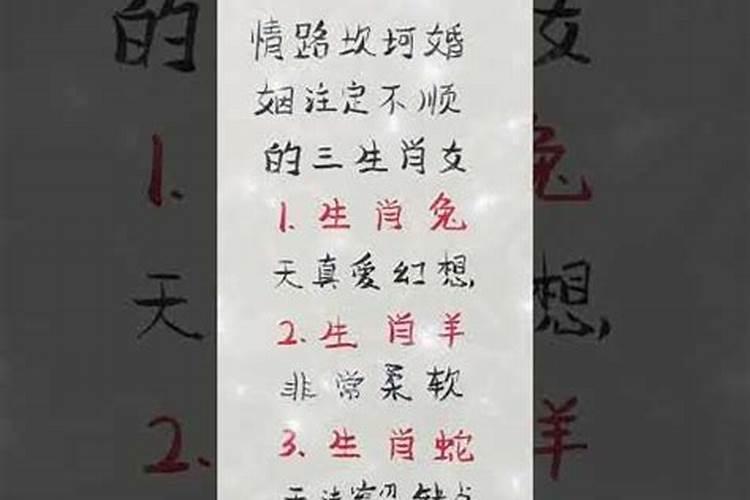 情路坎坷婚
姻注定不顺
的三生肖女
1.生肖兔
天真爱幻想,
2.生肖羊
非常柔软
3.生肖蛇